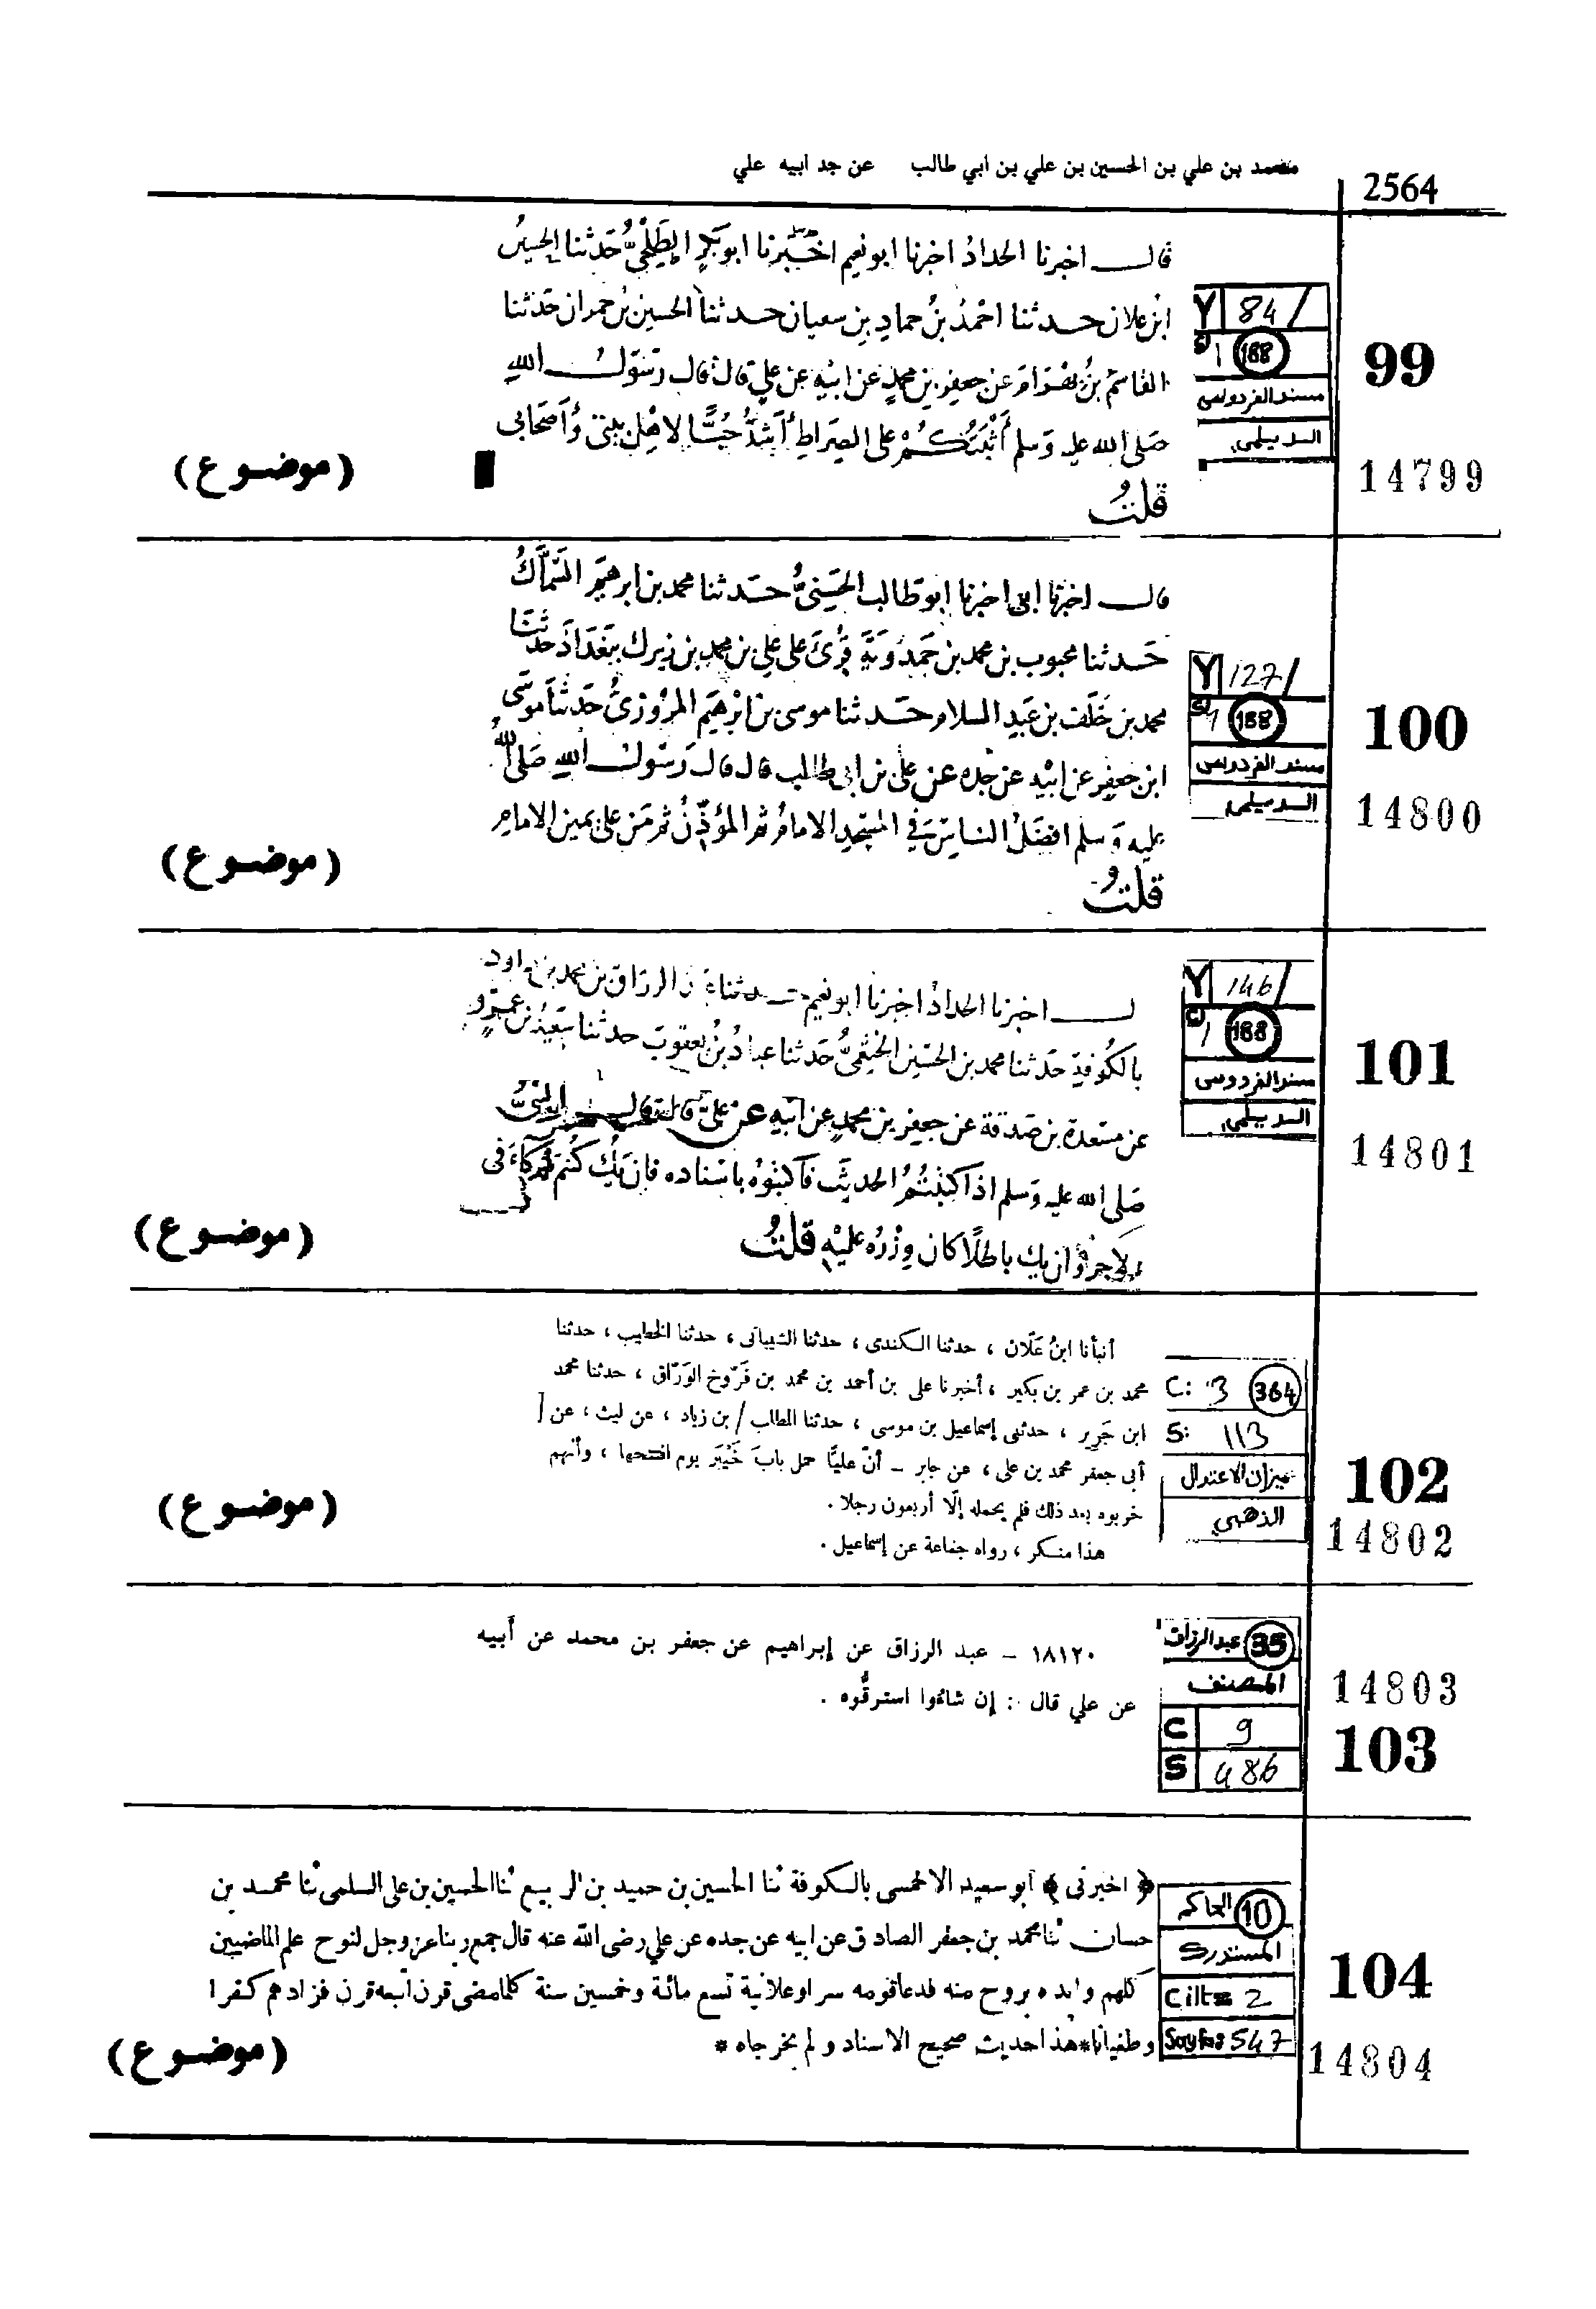 محمد بن علي بن الحسين بن علي بن ابي طالب عن جد ابيه علي
2564
قال اخبرنا الحداد اخبرنا ابو نعيم اخبرنا ابو بكر الطلحيُّ حدثنا الحسينُ
ابن علان حدثنا احمدُ بنُ حماد بن سفيان حدثنا الحسين بن حمران حدثنا
القاسمُ بنُ بهرام عن جعفر بن محمدٍ عن ابيه عن علي قال قال رسول الله
صلى الله عليه وسلم أثبتُكُمْ على الصراطِ أشدُّ حُبًّا لاهل بيتي وأصحابي
قلتُ
(موضوع)
Y 84/
S 1 188
مسند الفردوس
الديلمي
99
14799
قال اخبرنا ابي اخبرنا ابو طالب الحسينيُّ حدثنا محمد بن ابرهيم السَّمَّاكُ
حدثنا محبوب بن محمد بن حمدويَة قرئَ على علي بن محمد بن زيرك ببغداذ حدثنا
محمد بن خلف بن عبد السلام حدثنا موسى بن ابرهيم المروزيُّ حدثنا موسى
ابن جعفر عن ابيه عن جده عن علي بن ابي طالب قال قال رسول الله صلى الله
عليه وسلم افضلُ الناس في المسجد الامامُ ثم المؤذّنُ ثم من على يمين الامام
قلتُ
(موضوع)
Y 127/
S 1 188
مسند الفردوس
الديلمي
100
14800
ـــل اخبرنا الحدادُ اخبرنا ابو نعيم حدثنا الرزاق بن محمد بن داود
بالكوفة حدثنا محمد بن الحسين الخثعميُّ حدثنا عبادُ بنُ يعقوب حدثنا سعيدُ بن عمرٍو
عن مسعدة بن صدقة عن جعفر بن محمدٍ عن ابيه عن عليّ قال قال النبيُّ
صلى الله عليه وسلم اذا كتبتُمُ الحديثَ فاكتبوُه باسناده فان يك كنتم شركاءَ في
الاجر وان يك باطلاً كان وِزْرُه عليْهِ قلتُ
(موضوع)
Y 146/
C 1 188
مسند الفردوس
الديلمي
101
14801
أنبأنا ابنُ عَلّان ، حدثنا الكندى ، حدثنا الشيبانى ، حدثنا الخطيب ، حدثنا
محمد بن عمر بن بكير ، أخبرنا على بن أحمد بن محمد بن فَرّوخ الوَرّاق ، حدثنا محمد
ابن جَرِير ، حدثنى إسماعيل بن موسى ، حدثنا المطلب / بن زياد ، عن ليث ، عن [
أبى جعفر محمد بن على ، عن جابر – أنّ عليًّا حمل بابَ خَيْبَر يوم افتتحها ، وأنهم
خربوه بعد ذلك فلم يحمله إلّا أربعون رجلا .
هذا منكر ، رواه جماعة عن إسماعيل .
(موضوع)
C: 3 364
S: 113
ميزان الاعتدال
الذهبي
102
14802
١٨١٢٠ – عبد الرزاق عن إبراهيم عن جعفر بن محمد عن أبيه
عن علي قال : إن شاءُوا استرقُّوه .
عبد الرزاق 35
المصنف
C 9
S 486
14803
103
﴿ اخبرنى ﴾ ابو سعيد الاحمسى بالكوفة ثنا الحسين بن حميد بن الربيع ثنا الحسين بن على السلمى ثنا محمد بن
حسان ثنا محمد بن جعفر الصادق عن ابيه عن جده عن علي رضى الله عنه قال جمع ربنا عز وجل لنوح علم الماضيين
كلهم وايده بروح منه فدعا قومه سرا وعلانية تسع مائة وخمسين سنة كلما مضى قرن اتبعه قرن فزادهم كفرا
وطغيانا* هذا حديث صحيح الاسناد ولم يخرجاه *
(موضوع)
الحاكم 10
المستدرك
Cilt: 2
Sayfa: 547
104
14804